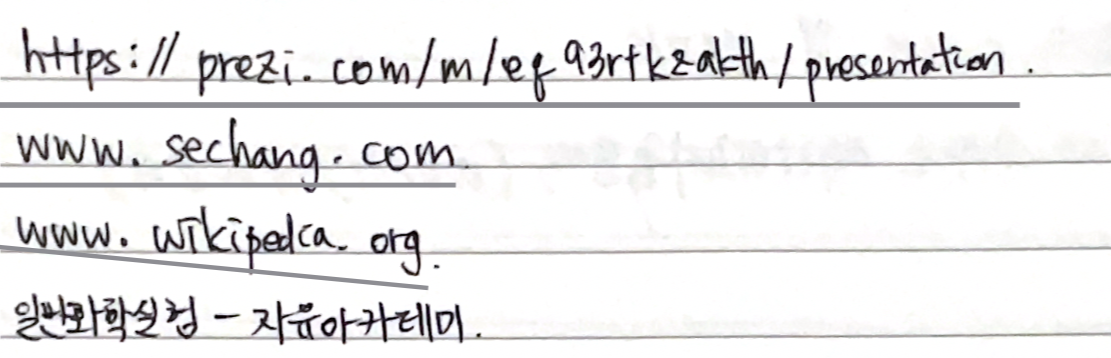 https://prezi.com/m/eq93rtkzakth/presentation.
www.sechang.com
www.wikipedia.org.
일반화학실험 - 자유아카데미.